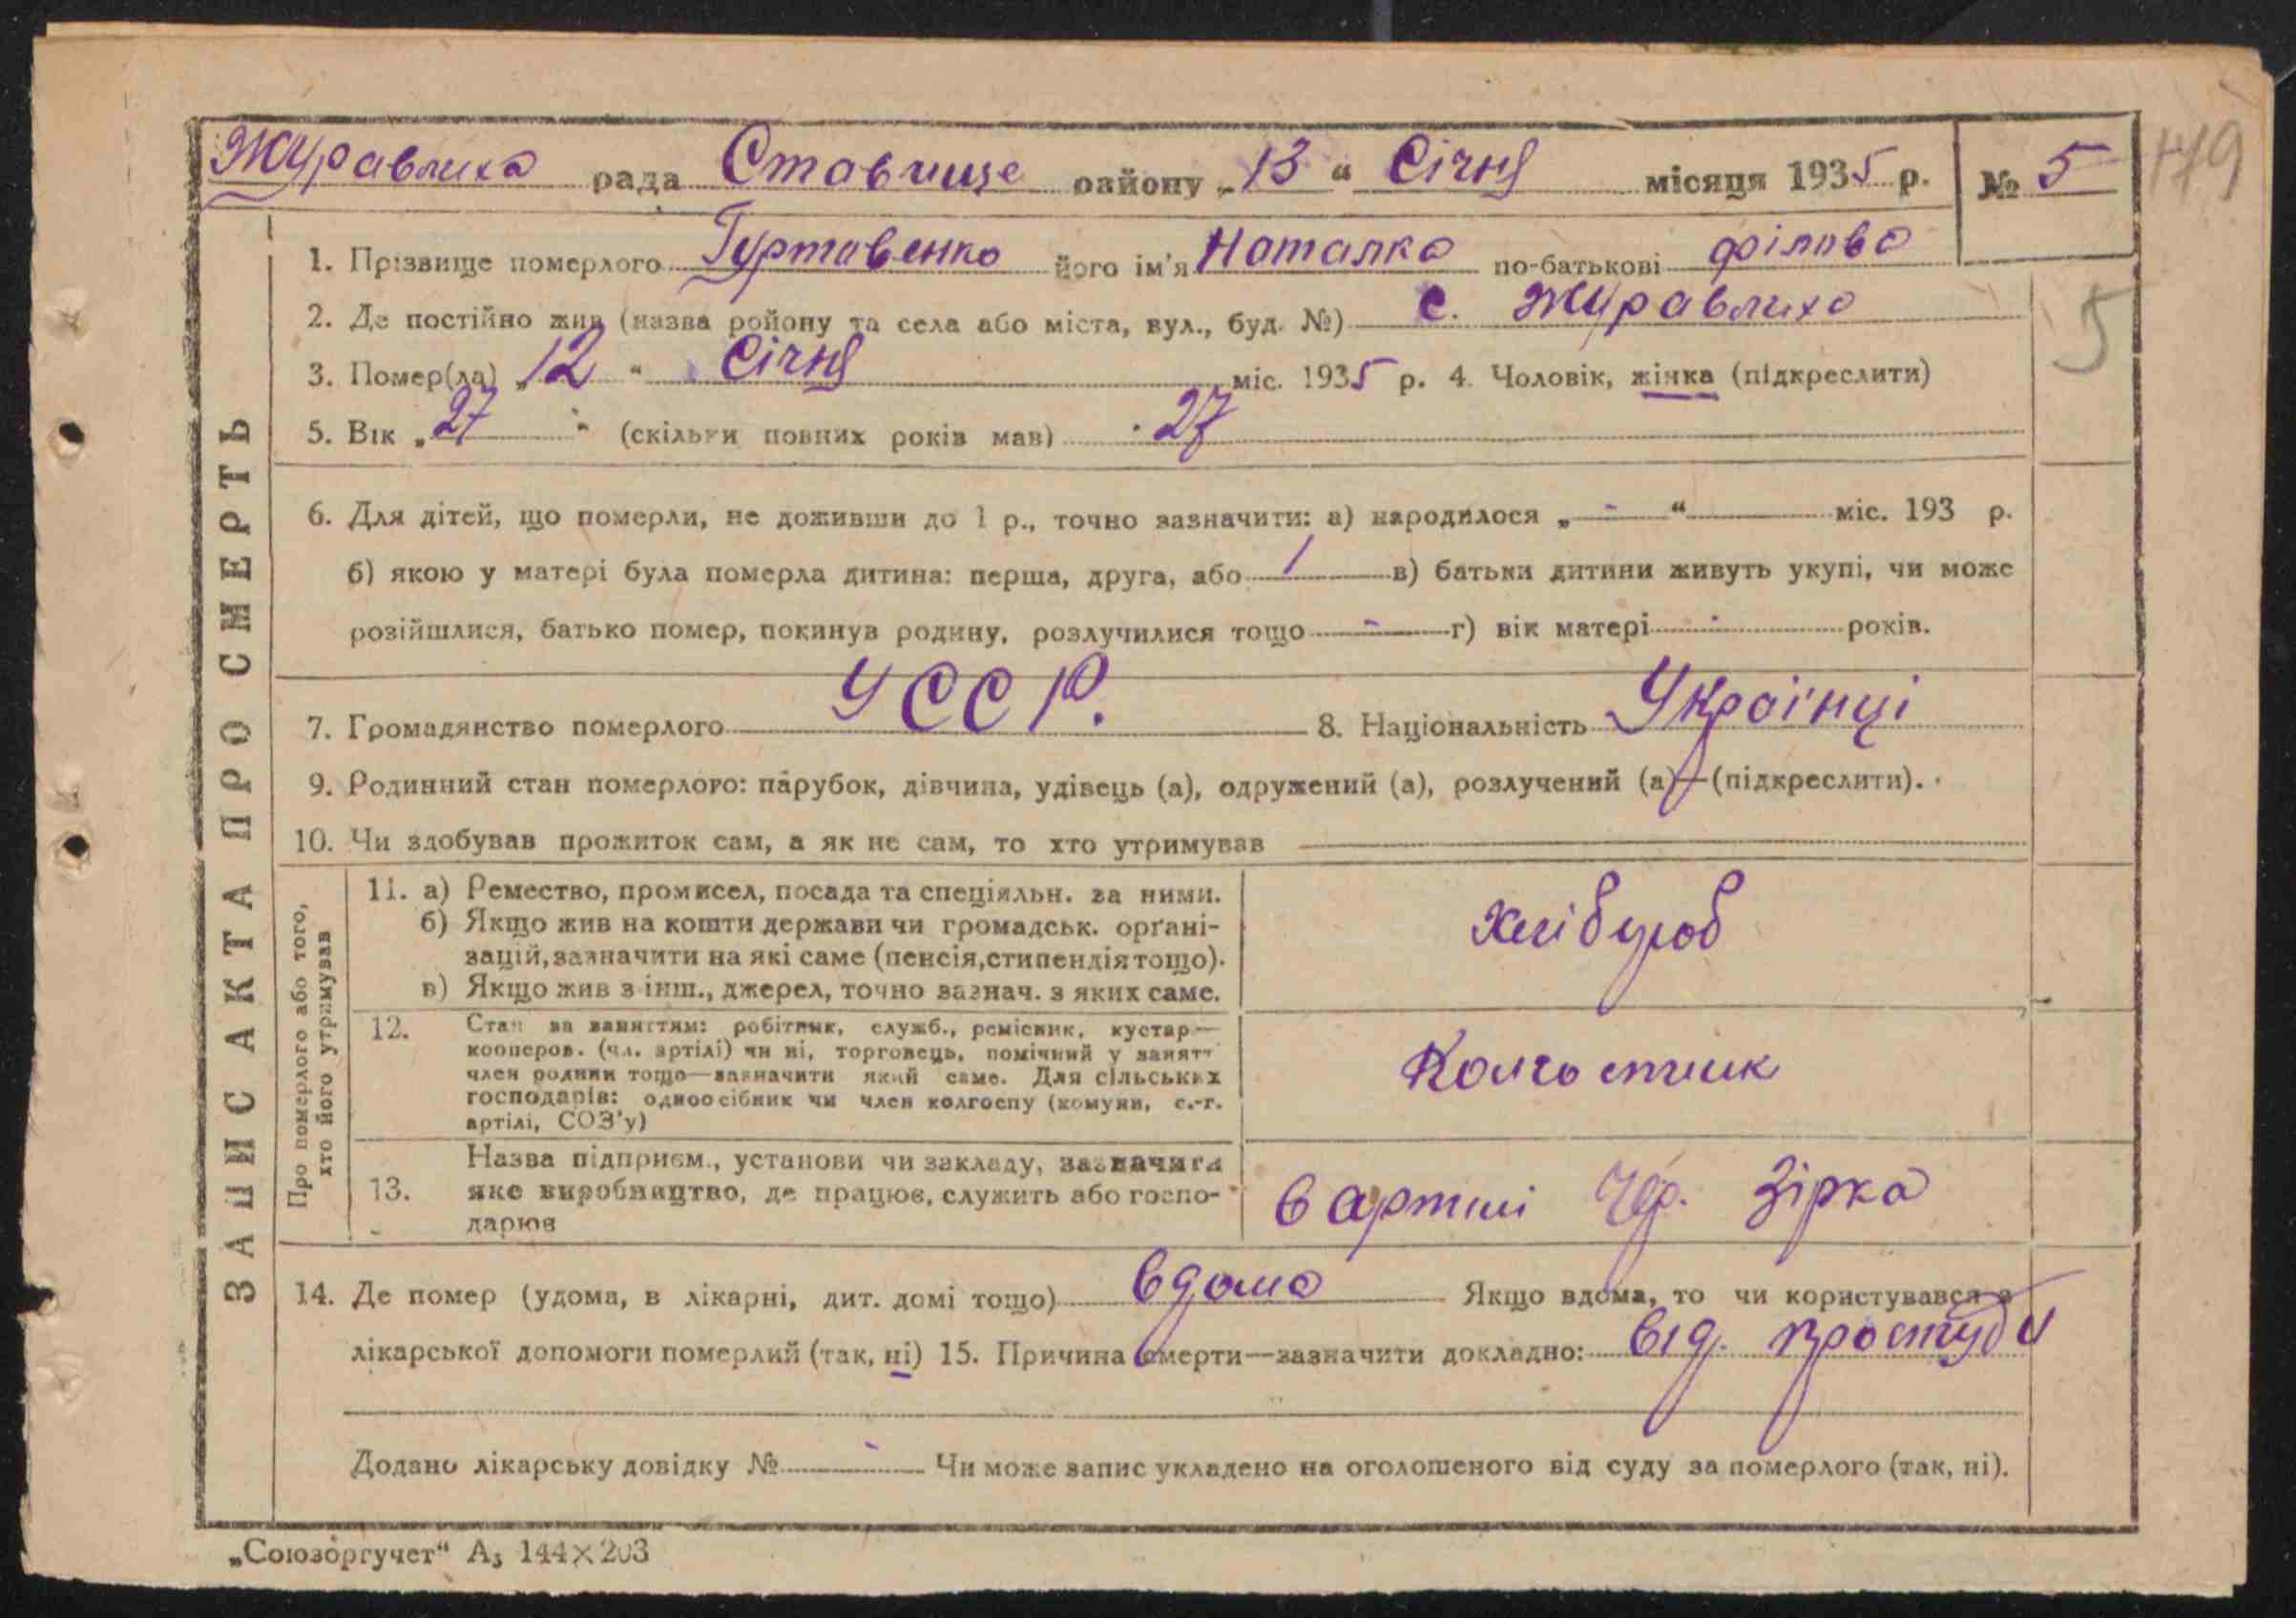 Журавлиха рада Ставище району „13“ Січня місяця 1935 р. № 5
179
1. Прізвище померлого Гуртовенко його ім'я Наталка по-батькові Філова
2. Де постійно жив (назва ройону та села або міста, вул., буд. №) с. Журавлиха
5
3. Помер(ла) „12“ Січня міс. 1935 р. 4. Чоловік, жінка (підкреслити)
5. Вік „27“ (скільки повних років мав) 27
6. Для дітей, що померли, не доживши до 1 р., точно зазначити: а) народилося „-“ міс. 193 р.
б) якою у матері була померла дитина: перша, друга, або 1 в) батьки дитини живуть укупі, чи може
розійшлися, батько помер, покинув родину, розлучилися тощо - г) вік матері - років.
7. Громадянство померлого УССР. 8. Національність Українці
9. Родинний стан померлого: парубок, дівчина, удівець (а), одружений (а), розлучений (а)—(підкреслити).
10. Чи здобував прожиток сам, а як не сам, то хто утримував
ЗАПИС АКТА ПРО СМЕРТЬ
Про померлого або того,
хто його утримував
11. а) Ремество, промисел, посада та спеціяльн. за ними.
б) Якщо жив на кошти держави чи громадськ. орґані-
зацій, зазначити на які саме (пенсія, стипендія тощо).
в) Якщо жив з інш., джерел, точно зазнач. з яких саме.
Хлібороб
12. Стан за заняттям: робітник, служб., ремісник, кустар—
кооперов. (чл. артілі) чи ні, торговець, помічний у занятт
член родини тощо—зазначити який саме. Для сільських
господарів: одноосібник чи член колгоспу (комуни, с.-г.
артілі, СОЗ'у)
Колгоспник
13. Назва підприєм., установи чи закладу, зазначити
яке виробництво, де працює, служить або госпо-
дарює
в артилі Чер. Зірка
14. Де помер (удома, в лікарні, дит. домі тощо) вдома Якщо вдома, то чи користувався з
лікарської допомоги померлий (так, ні) 15. Причина смерти—зазначити докладно: від. простуди
Додано лікарську довідку № - Чи може запис укладено на оголошеного від суду за померлого (так, ні).
„Союзоргучет“ А₅ 144×203